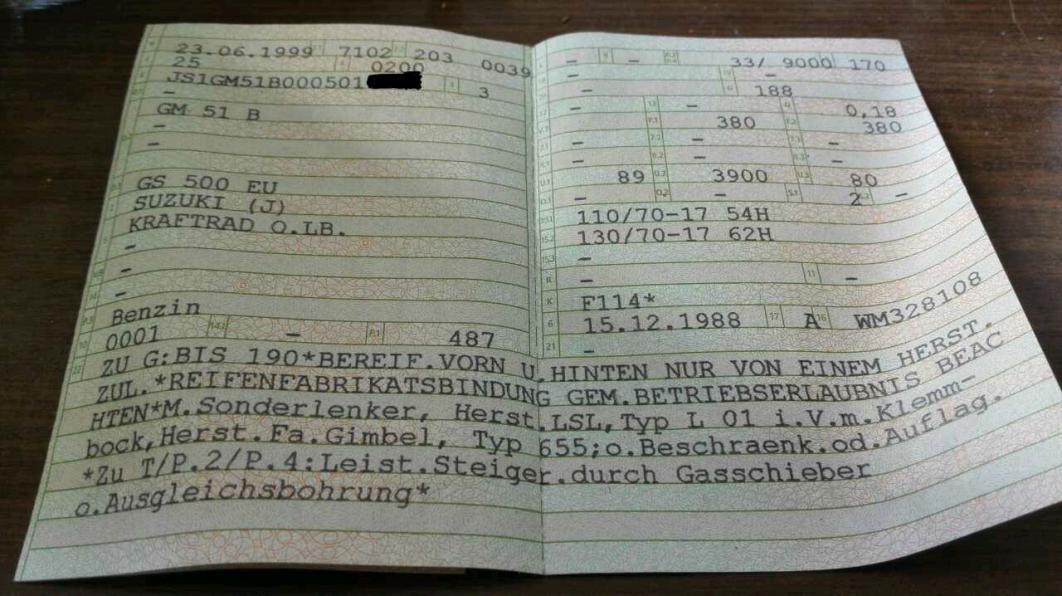 23.06.1999 7102 203 0039
25 0200
JS1GM51B000501 3
-
GM 51 B
-
-
GS 500 EU
SUZUKI (J)
KRAFTRAD O.LB.
-
-
-
Benzin
0001 14.1 - P.1 487
- 9 - 33/ 9000 170
- -
- 188
- 0,18
- F.1 380 F.2 380
- 7.1 - 7.2 -
- 8.2 - 8.3 -
U.1 89 U.2 3900 U.3 80
- O.2 - S.1 2 -
15.1 110/70-17 54H
15.2 130/70-17 62H
15.3 -
R - 11 -
K F114*
6 15.12.1988 17 A 16 WM328108
21 -
22 ZU G:BIS 190*BEREIF.VORN U.HINTEN NUR VON EINEM HERST.
ZUL.*REIFENFABRIKATSBINDUNG GEM.BETRIEBSERLAUBNIS BEAC
HTEN*M.Sonderlenker, Herst.LSL,Typ L 01 i.V.m.Klemm-
bock,Herst.Fa.Gimbel, Typ 655;o.Beschraenk.od.Auflag.
*Zu T/P.2/P.4:Leist.Steiger.durch Gasschieber
o.Ausgleichsbohrung*